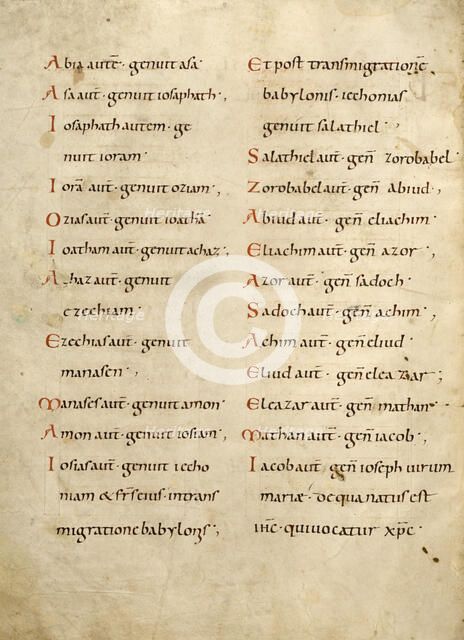 Abia autē · genuit asa ·
Asa aut̄ · genuit iosaphath ·,
Iosaphath autem · ge
nuit ioram ·
Iorā aut̄ · genuit oziam ·,
Ozias aut̄ · genuit ioathā ·
Ioatham aut̄ · genuit achaz ·,
Achaz aut̄ · genuit
ezechiam ·
Ezechias aut̄ · genuit
manasen ·,
Manases aut̄ · genuit amon ·
Amon aut̄ · genuit iosiam ·,
Iosias aut̄ · genuit iecho
niam & fr̄s eius · in trans
migratione babylonis ·,
Et post transmigrationē
babylonis · iechonias
genuit salathiel ·
Salathiel aut̄ · geñ zorobabel
Zorobabel aut̄ · geñ abiud ·,
Abiud aut̄ · geñ eliachim ·
Eliachim aut̄ · geñ azor ·,
Azor aut̄ · geñ sadoch ·
Sadoch aut̄ · geñ achim ·,
Achim aut̄ · geñ eliud ·
Eliud aut̄ · geñ eleazar ·,
Eleazar aut̄ · geñ mathan ·
Mathan aut̄ · geñ iacob ·,
Iacob aut̄ · geñ ioseph uirum
mariæ · de qua natus est
ih̄c · qui uocatur xp̄c ·